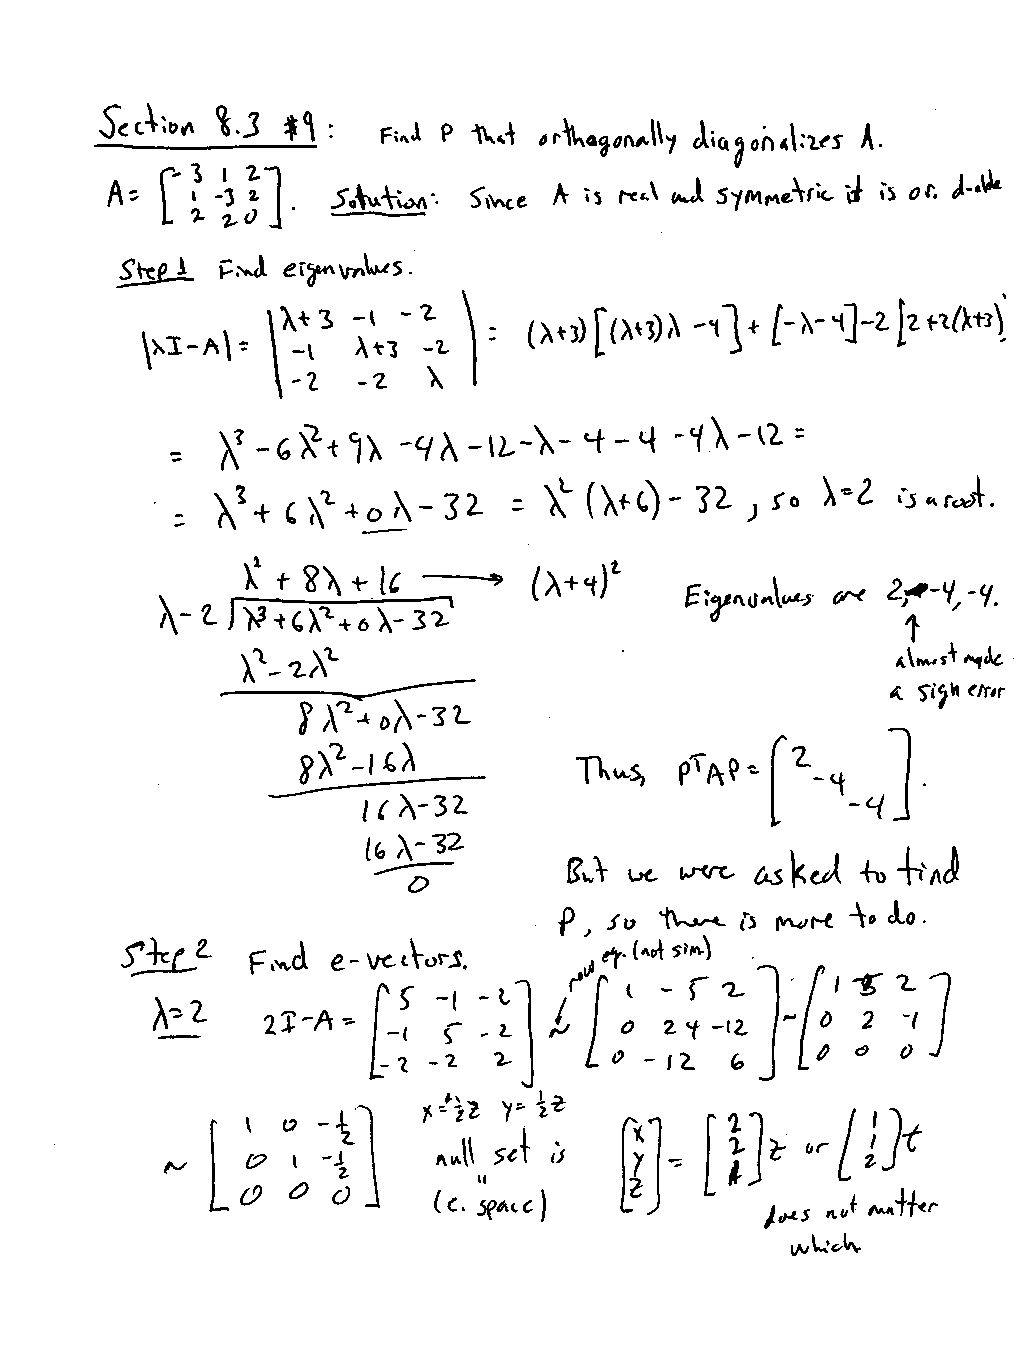 Section 8.3 #9: Find P that orthogonally diagonalizes A.
A = [-3 1 2; 1 -3 2; 2 2 0]. Solution: Since A is real and symmetric it is or. d-able
Step 1 Find eigenvalues.
|λI-A| = |λ+3 -1 -2; -1 λ+3 -2; -2 -2 λ| = (λ+3)[(λ+3)λ -4] + [-λ-4] -2[2+2(λ+3)]
= λ³ -6λ² + 9λ -4λ -12 -λ -4 -4 -4λ -12 =
= λ³ + 6λ² + 0λ - 32 = λ²(λ+6) - 32, so λ=2 is a root.
λ² + 8λ + 16 → (λ+4)²
λ-2 ) λ³+6λ²+0λ-32
Eigenvalues are 2, -4, -4.
↑
almost made
a sign error
λ²-2λ²
8λ²+0λ-32
8λ²-16λ
16λ-32
16λ-32
0
Thus, PᵀAP = [2 -4 -4].
But we were asked to find
P, so there is more to do.
Step 2 Find e-vectors.
row eq. (not sim)
λ=2 2I-A = [5 -1 -2; -1 5 -2; -2 -2 2] ~ [1 -5 2; 0 24 -12; 0 -12 6] ~ [1 5 2; 0 2 -1; 0 0 0]
~ [1 0 -½; 0 1 -½; 0 0 0]
x=½z y=½z
null set is
"
(e. space)
[x; y; z] = [2; 2; 1]z or [1; 1; 2]t
does not matter
which